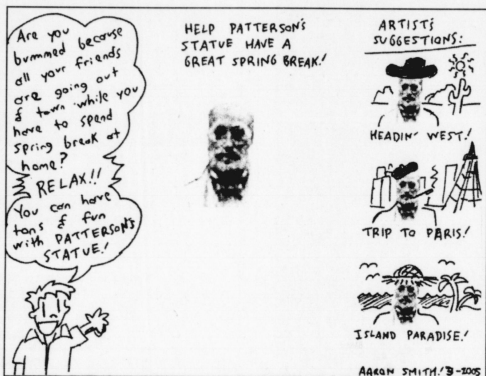 Are you
bummed because
all your friends
are going out
of town while you
have to spend
spring break at
home?
RELAX!!
You can have
tons of fun
with PATTERSON'S
STATUE!
HELP PATTERSON'S
STATUE HAVE A
GREAT SPRING BREAK!
ARTIST'S
SUGGESTIONS:
HEADIN' WEST!
TRIP TO PARIS!
ISLAND PARADISE!
AARON SMITH! 3-2005